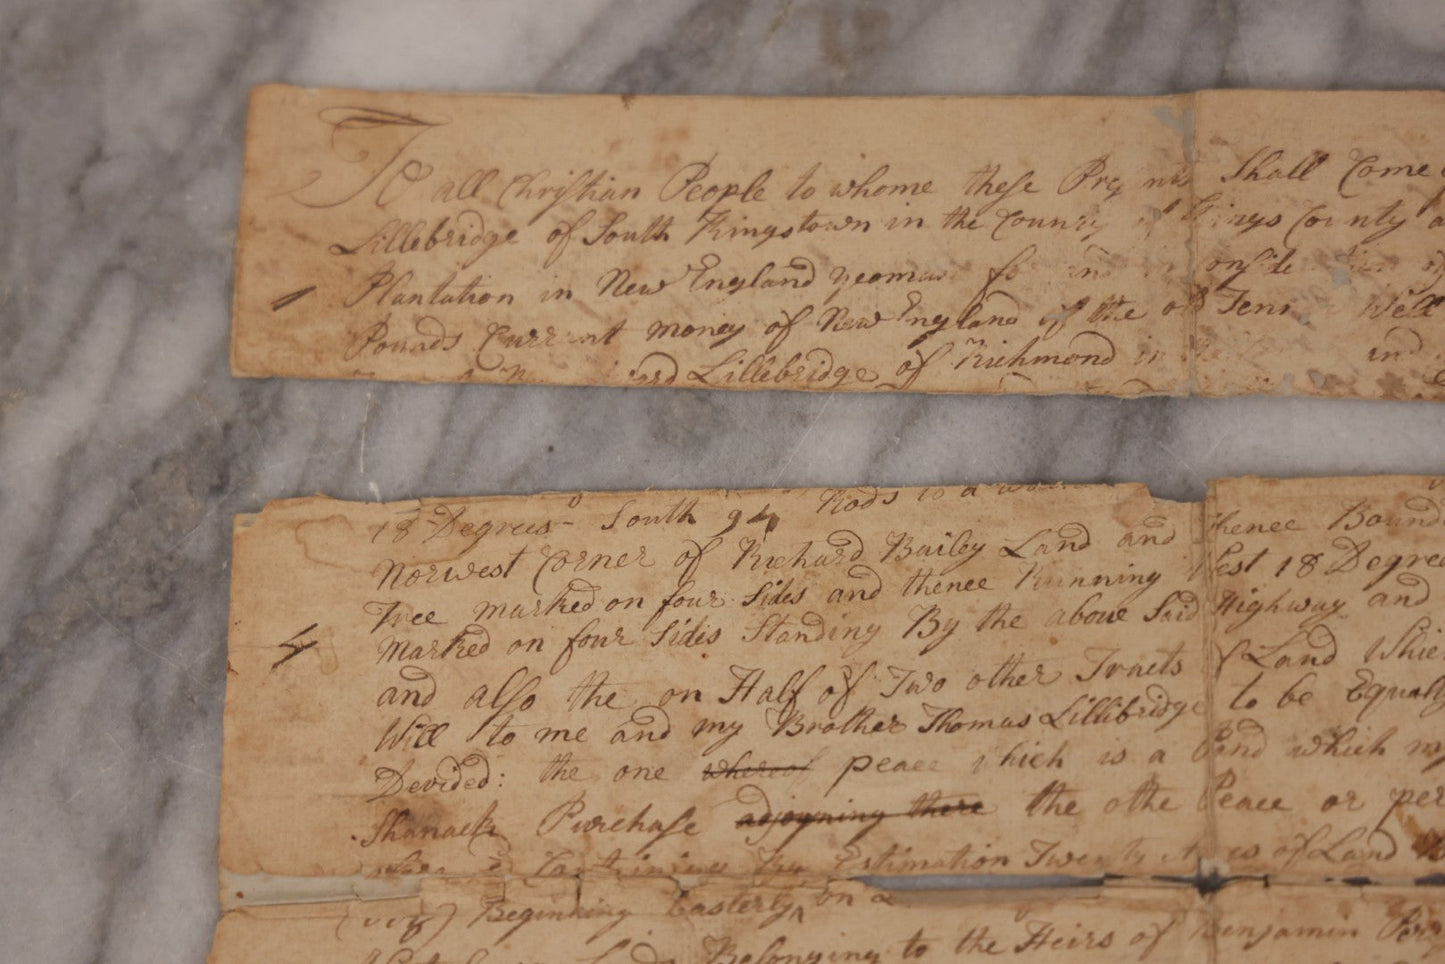 To all Christian People to whome these Shall Come
Lillebridge of South Kingstown in the County Kings County
1 Plantation in New England yeoman
Pounds Current money of New England of the old Tenner Well
Lillebridge of Richmond in
18 Degrees South 94 Rods to a
Norwest Corner of Richard Bailey Land and thence Bound
Tree marked on four Sides and thence Running West 18 Degree
4 Marked on four Sides Standing By the above Said Highway and
and also the on Half of Two other Tracts of Land Which
Will to me and my Brother Thomas Lillibridge to be Equally
Devided: the one whereof peace which is a Land which my
Shanack Purchase adjoyning there the othe Peace or per
By Estimation Twenty of Land
Beginning Easterly on a
Belonging to the Heirs of Benjamin